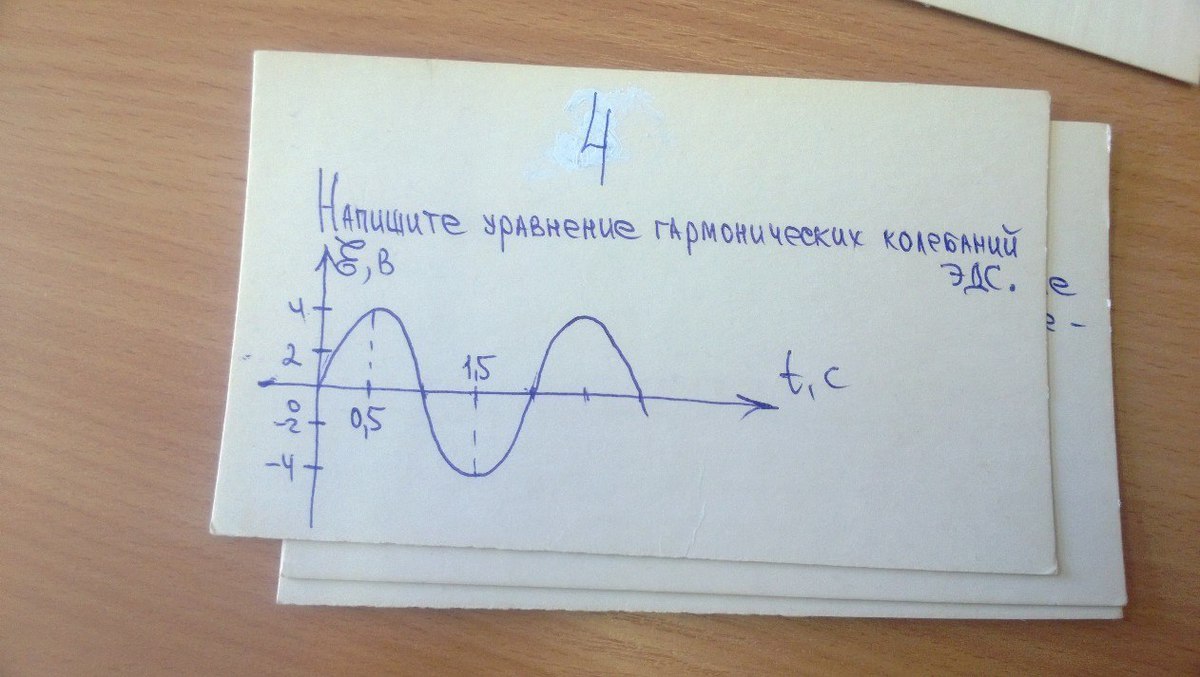 4
Напишите уравнение гармонических колебаний
ЭДС.
ℰ, В
4
2
0
-2
-4
0,5
1,5
t, с
е
е-